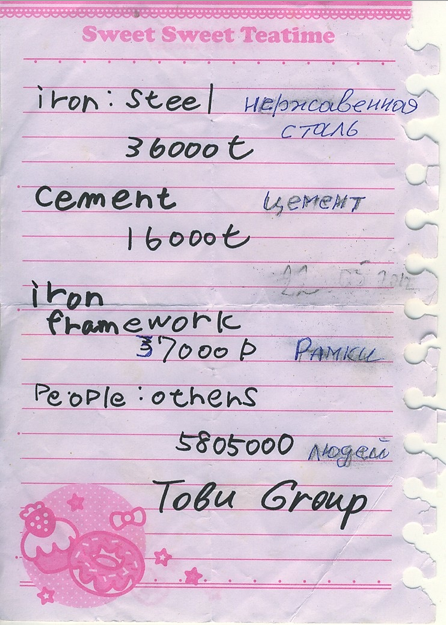 Sweet Sweet Teatime
iron: Steel нержавенная
сталь
36000t
Cement цемент
16000t
iron
framework
37000 P Рамки
People: others
5805000 людей
Tobu Group